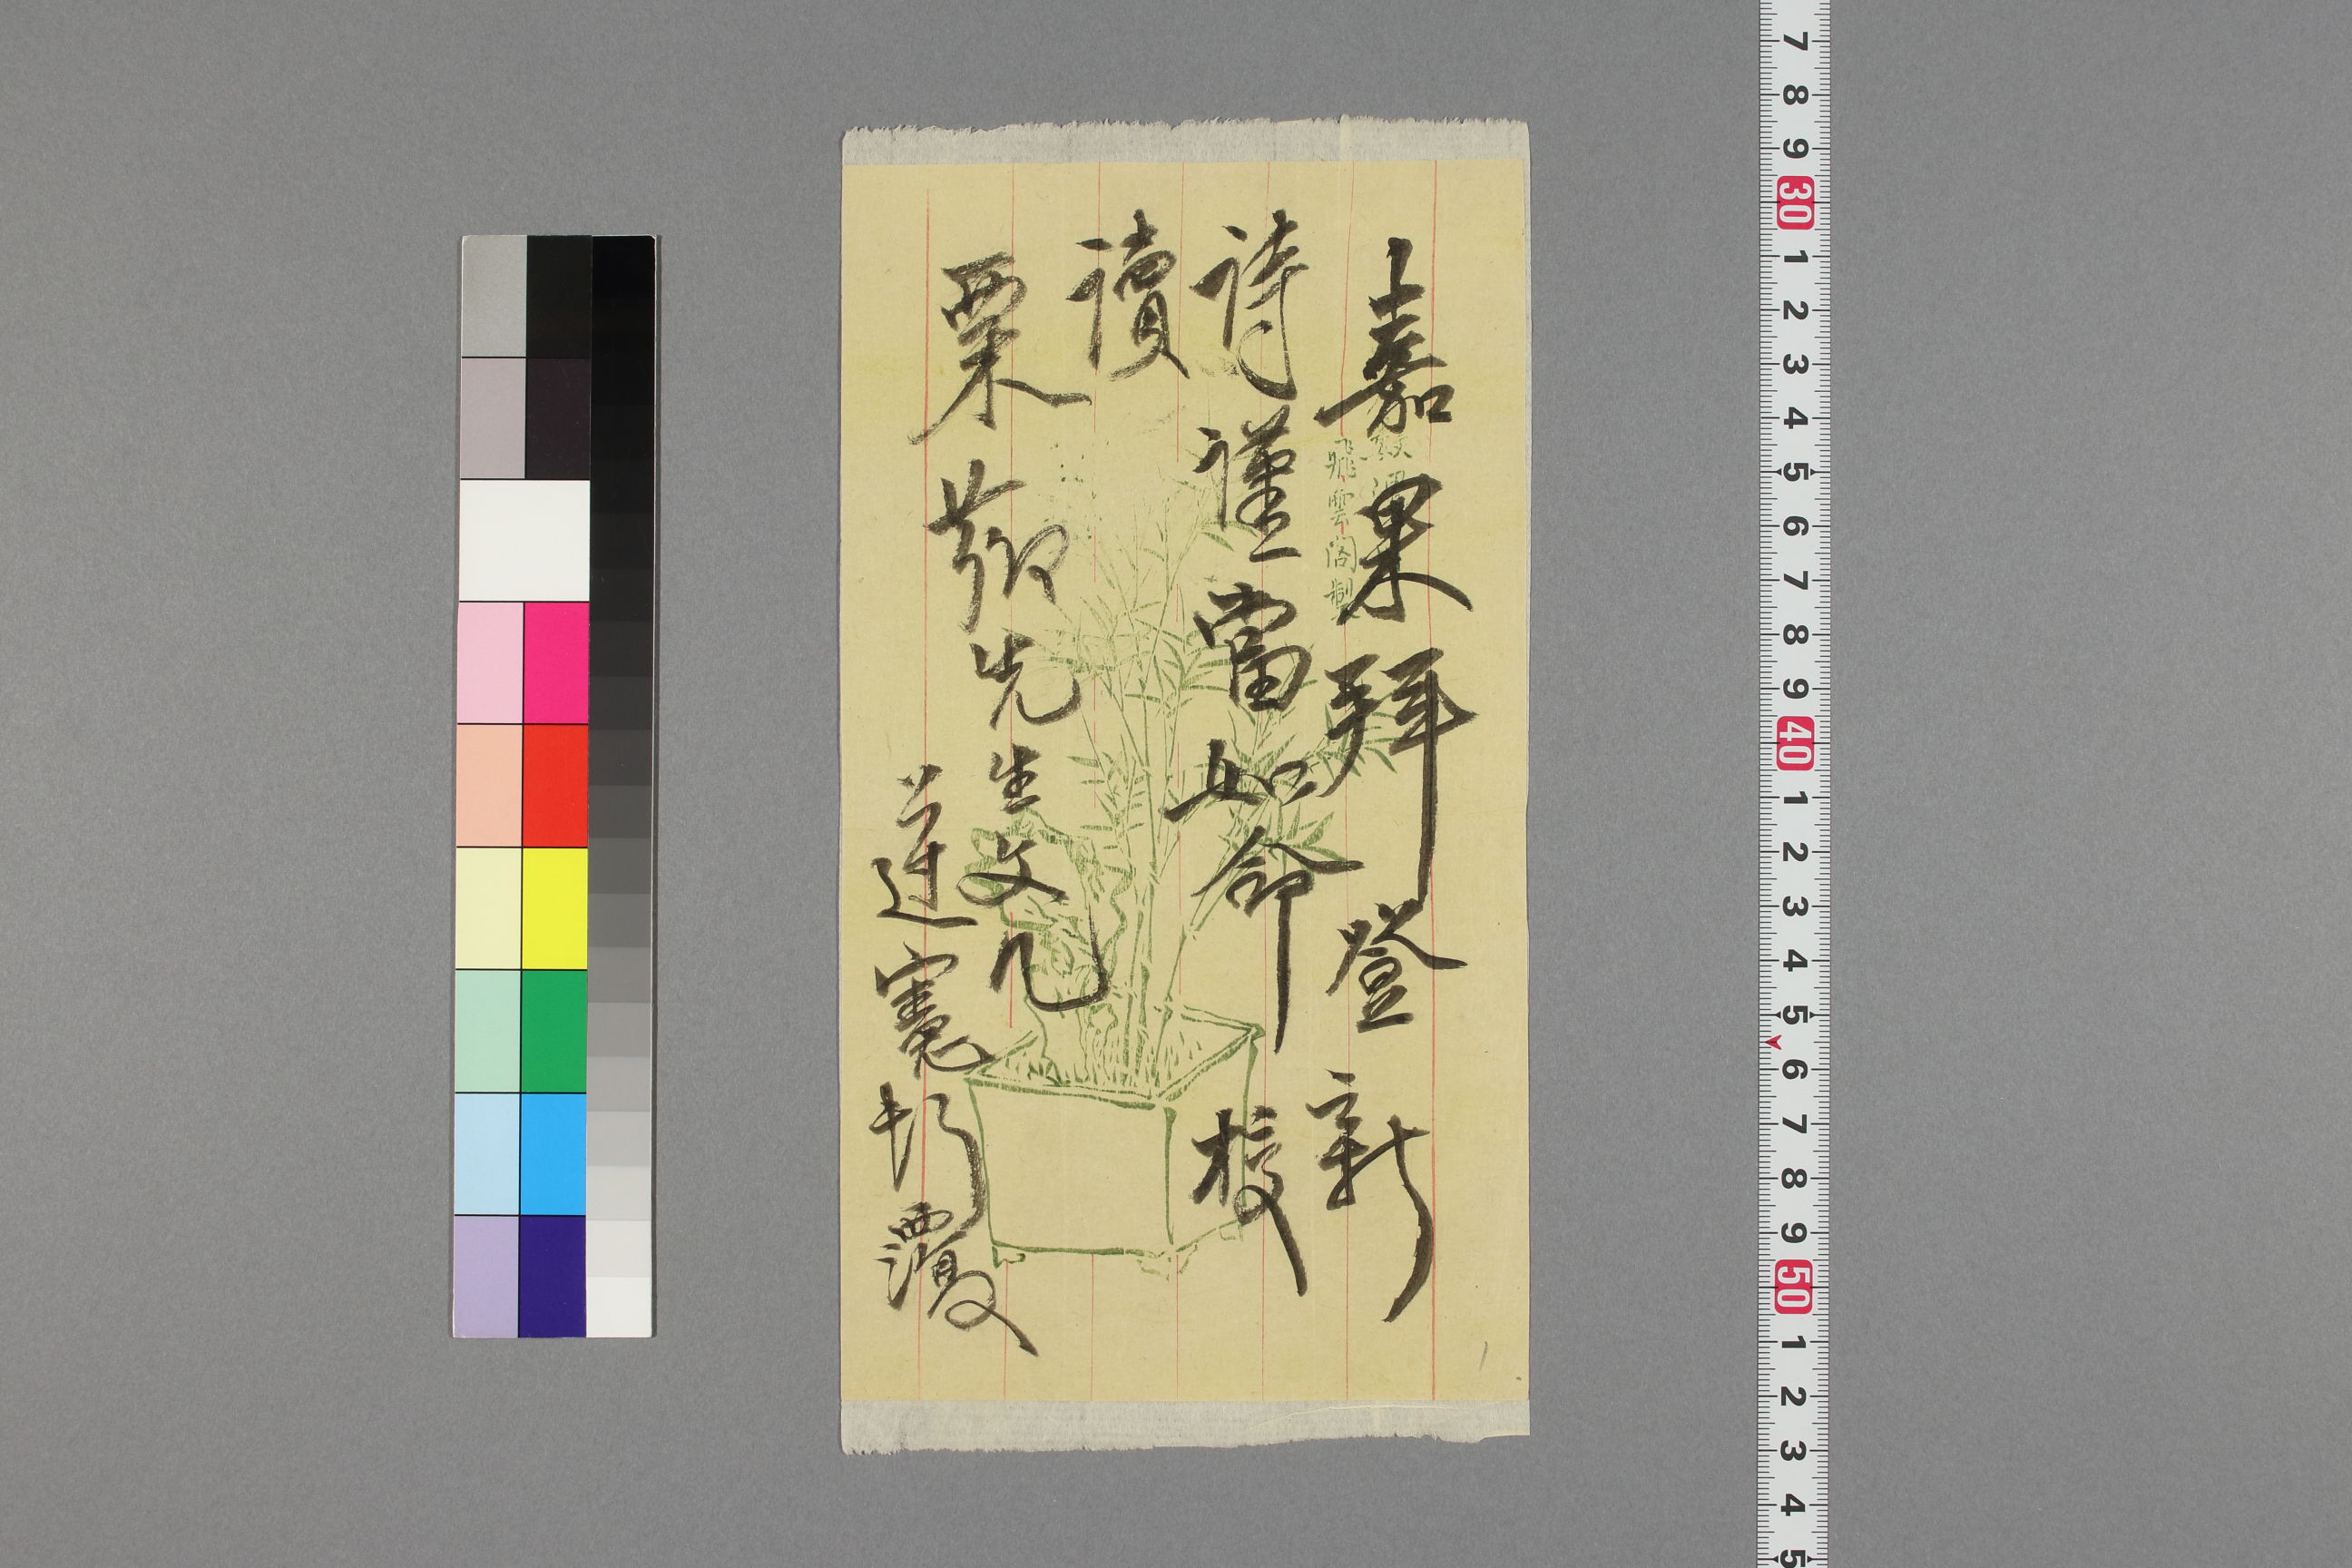 嘉果拜登新
詩謹當如命校
讀
栗薌先生文几
蓮寯頓覆
飛雲閣制
7 8 9 30 1 2 3 4 5 6 7 8 9 40 1 2 3 4 5 6 7 8 9 50 1 2 3 4 5